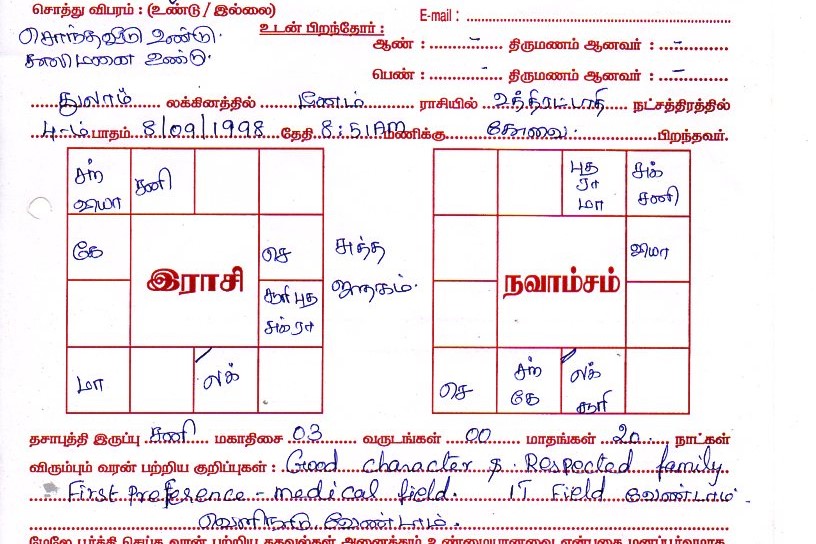 சொத்து விபரம் : (உண்டு / இல்லை)
E-mail :
சொந்தவீடு உண்டு.
காலிமனை உண்டு.
உடன் பிறந்தோர் :
ஆண் : - திருமணம் ஆனவர் : -
பெண் : - திருமணம் ஆனவர் : -
துலாம் லக்கினத்தில் மீனம் ராசியில் உத்திரட்டாதி நட்சத்திரத்தில்
4-ம் பாதம் 8/09/1998 தேதி 8:51AM மணிக்கு கோவை. பிறந்தவர்.
சந் சனி
வியா
கே செ
இராசி
சூரி புத
சுக் ரா
மா லக்
சுத்த
ஜாதகம்.
புத சுக்
ரா சனி
மா
வியா
நவாம்சம்
செ சந் லக்
கே சூரி
தசாபுத்தி இருப்பு சனி மகாதிசை 03 வருடங்கள் 00 மாதங்கள் 20 நாட்கள்
விரும்பும் வரன் பற்றிய குறிப்புகள் : Good character & Respected family
First Preference - medical field. IT Field வேண்டாம்
வெளிநாடு வேண்டாம்.
மேலே பூர்த்தி செய்த வரன் பற்றிய தகவல்கள் அனைத்தும் உண்மையானவை என்பதை மனப்பூர்வமாக